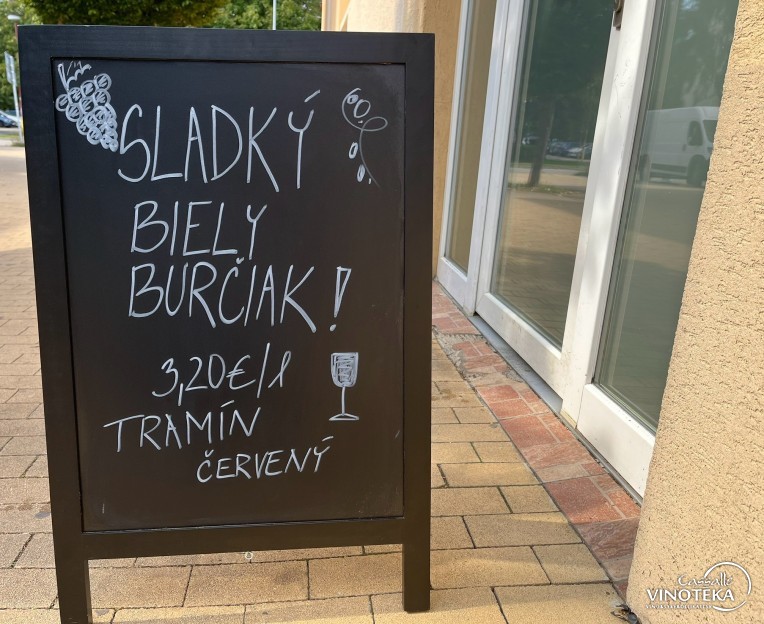 SLADKÝ
BIELY
BURČIAK!
3,20€/l
TRAMÍN
ČERVENÝ
Cassallé
VINOTEKA